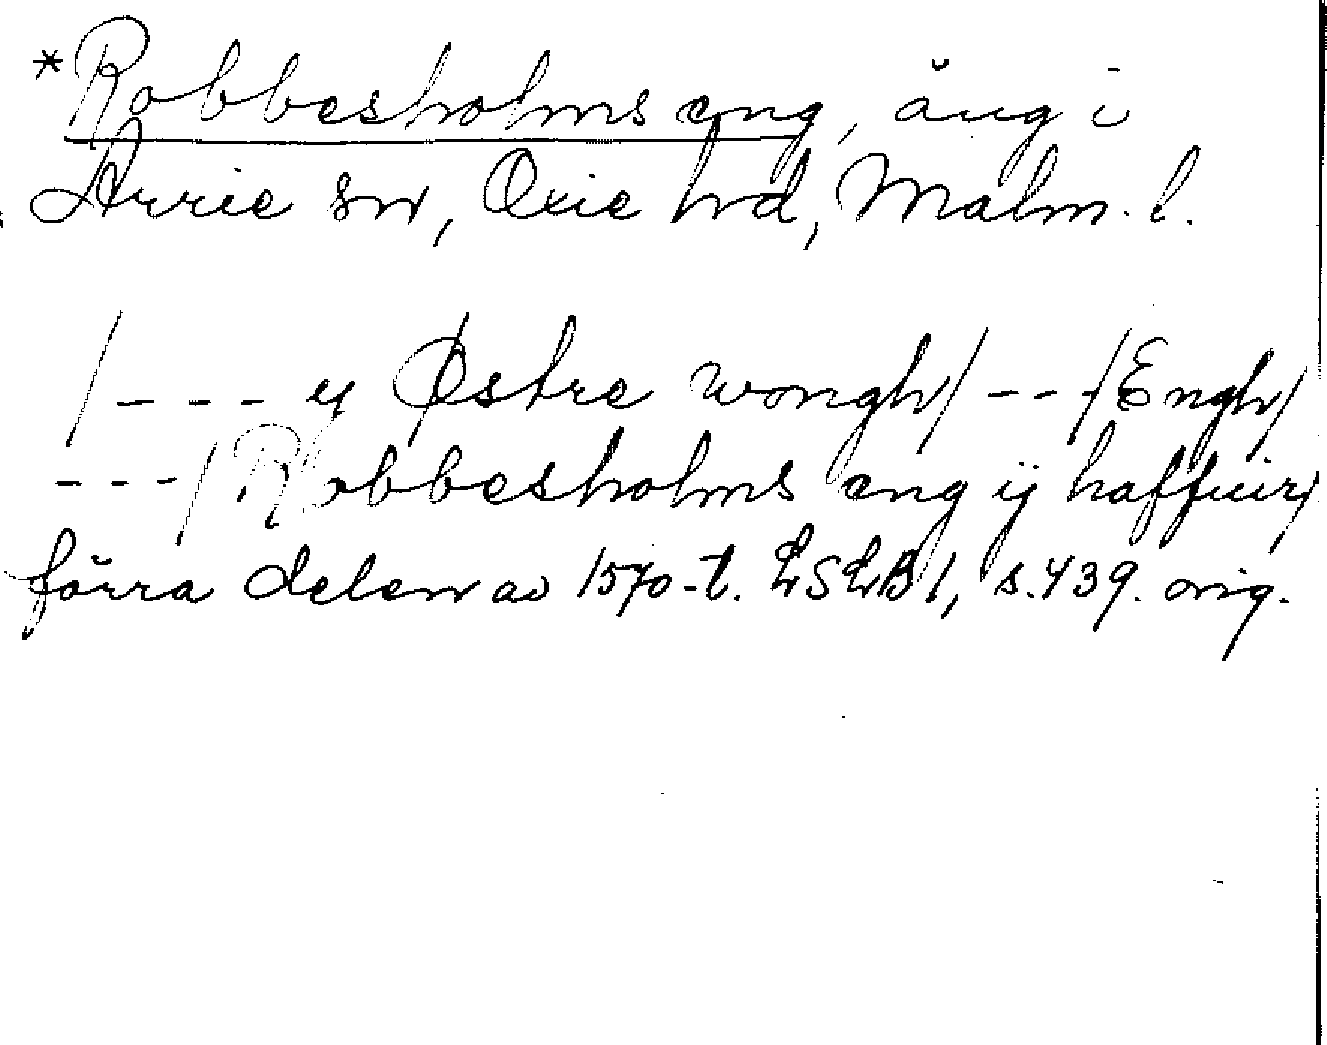 *Robbesholms eng, äng i
Arrie sn, Oxie hd, Malm. l.
/---- y Østre wongh/ ---/Engh/
---/ Robbesholms eng ij haffuir/
förra delen av 1570-t. LSLB 1, s. 439. orig.